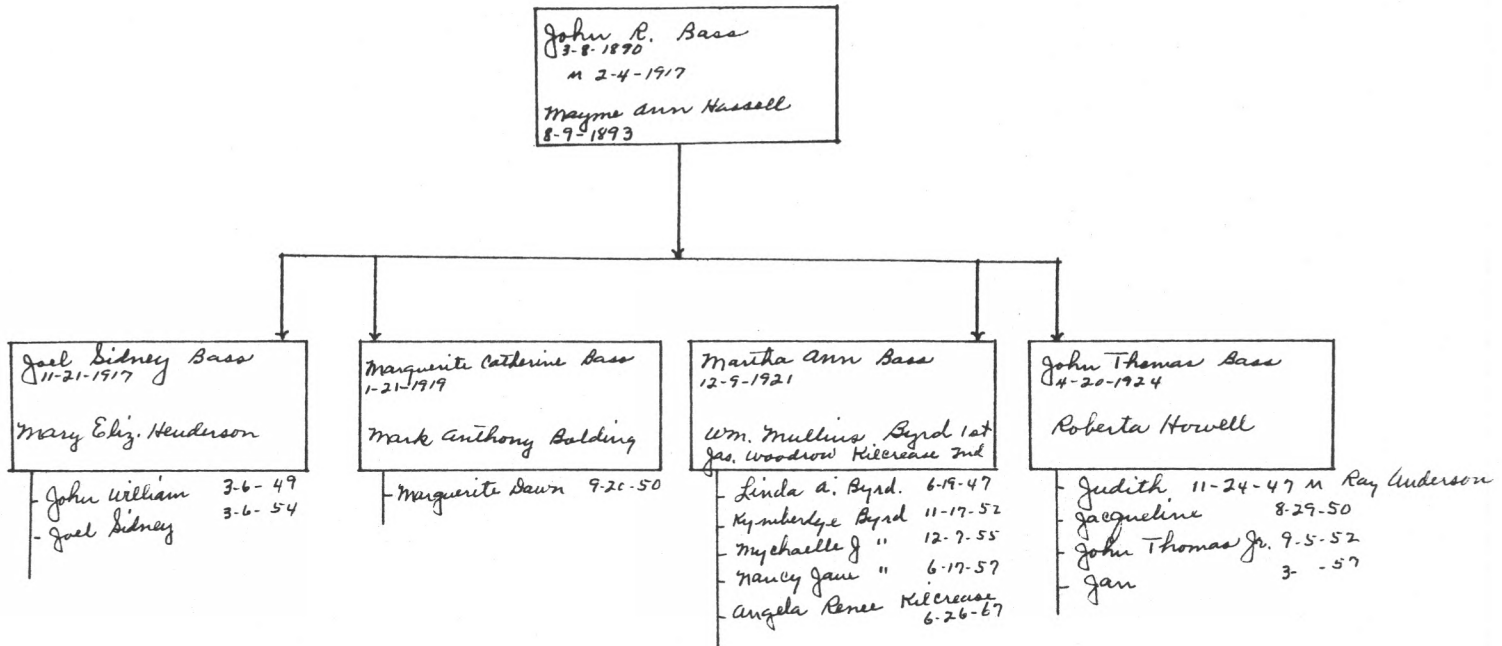 John R. Bass
3-8-1890
m 2-4-1917
Mayme Ann Hassell
8-9-1893
Joel Sidney Bass
11-21-1917
Mary Eliz. Henderson
John William 3-6-49
Joel Sidney 3-6-54
Marguerite Catherine Bass
1-21-1919
Mark Anthony Bolding
Marguerite Dawn 9-20-50
Martha Ann Bass
12-9-1921
Wm. Mullins Byrd 1st
Jas. Woodrow Kilcrease 2nd
Linda A. Byrd. 6-19-47
Kymberlye Byrd 11-17-52
Mychaelle J " 12-7-55
Nancy Jane " 6-17-57
Angela Renee Kilcrease
6-26-67
John Thomas Bass
4-20-1924
Roberta Howell
Judith 11-24-47 m Ray Anderson
Jacqueline 8-29-50
John Thomas Jr. 9-5-52
Jan 3- -57